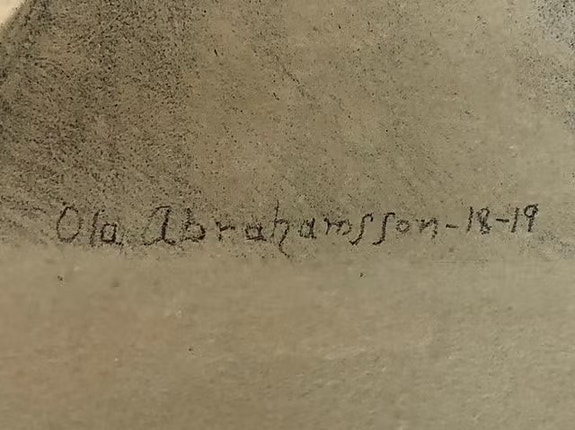 Ola Abrahamsson-18-19